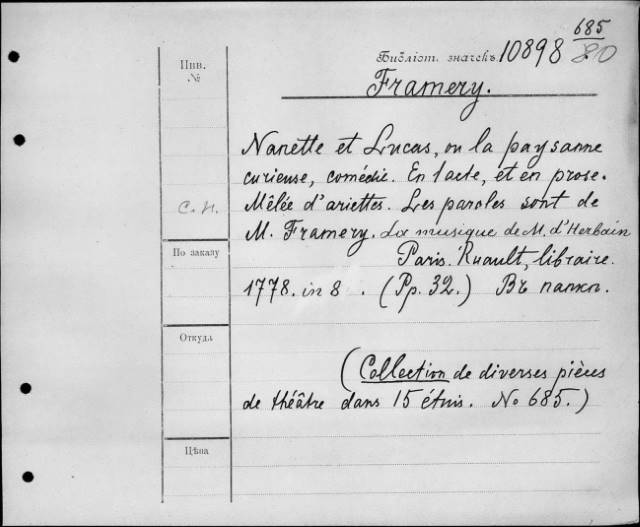 685
Инв.
№
Библіот. значекъ 10898 80
Framery.
Nanette et Lucas, ou la paysanne
curieuse, comédie. En 1 acte, et en prose.
С. И.
Mêlée d'ariettes. Les paroles sont de
M. Framery. La musique de M. d'Herbain
По заказу
Paris. Ruault, libraire.
1778. in 8. (Pp. 32.) Въ папкѣ.
Откуда
(Collection de diverses pièces
de théâtre dans 15 étuis. No 685.)
Цѣна